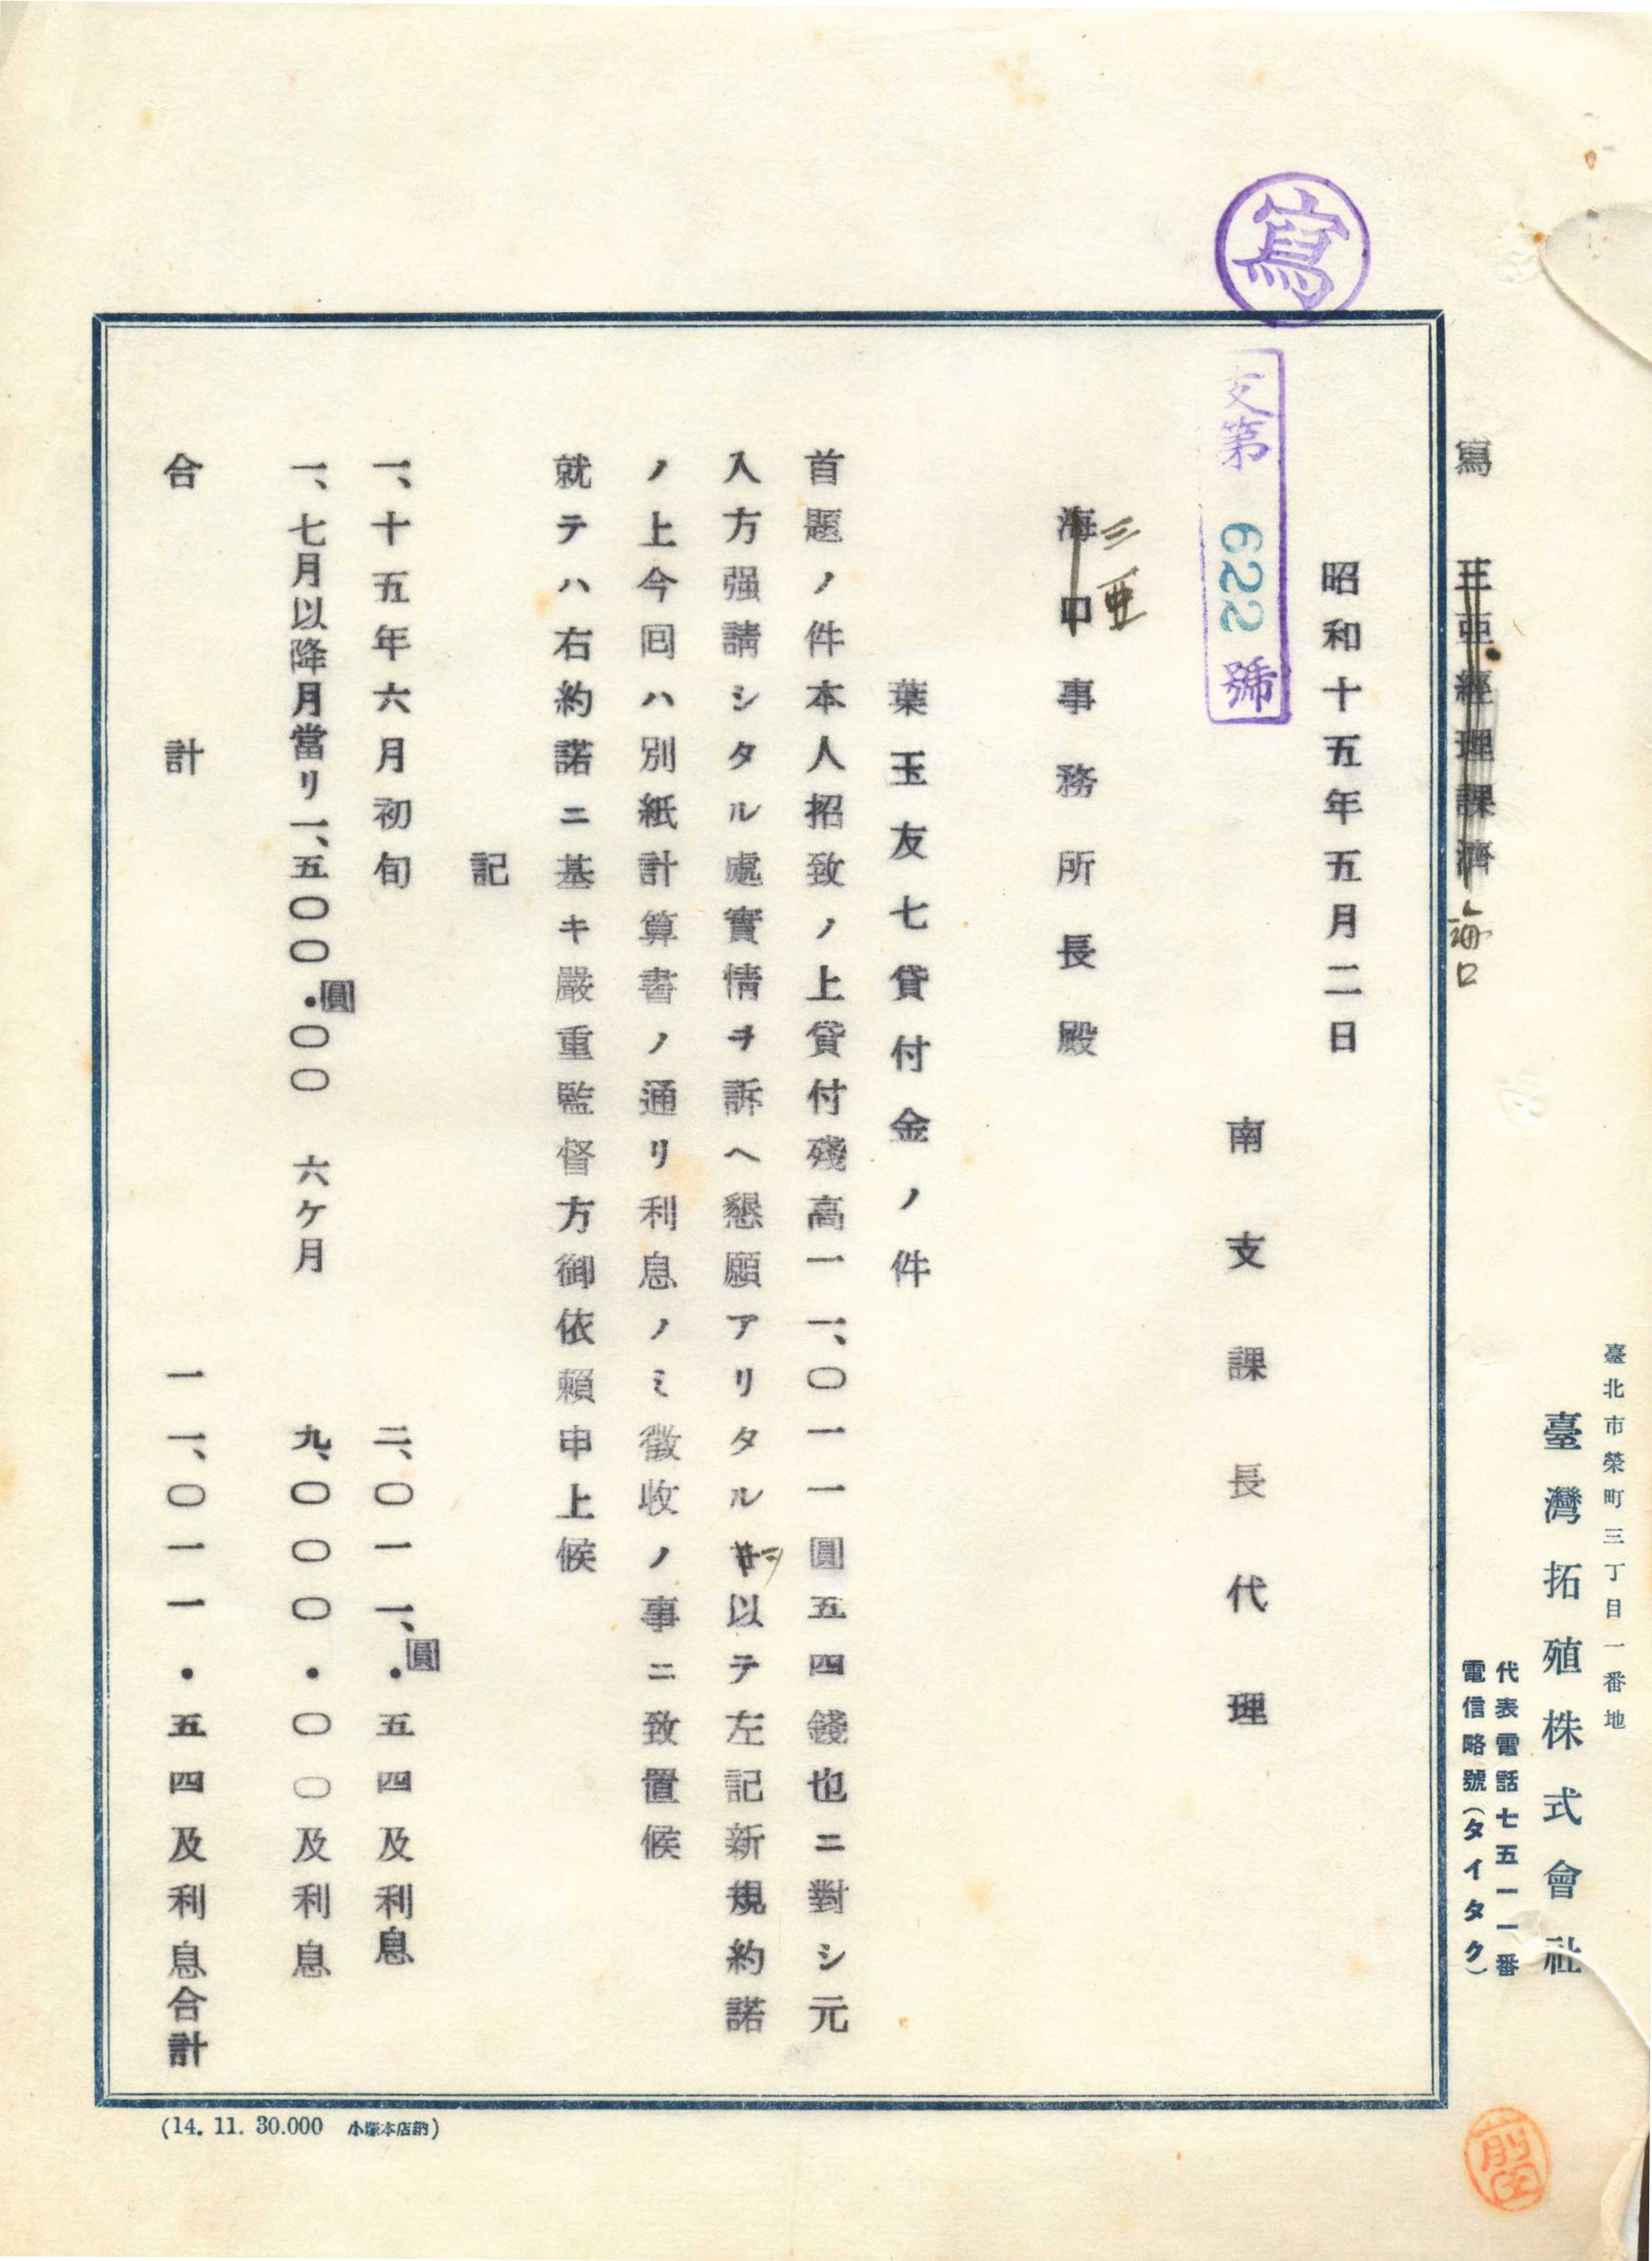 臺北市榮町三丁目一番地
臺灣拓殖株式會社
代表電話七五一一番
電信略號(タイタク)
寫 三亞經理課濟 海口
寫
昭和十五年五月二日
文第622號
南支課長代理
三亞
海口事務所長殿
葉玉友七貸付金ノ件
首題ノ件本人招致ノ上貸付殘高一一、〇一一圓五四錢也ニ對シ元
入方强請シタル處實情ヲ訴ヘ懇願アリタルヲ以テ左記新規約諾
ノ上今囘ハ別紙計算書ノ通リ利息ノミ徵收ノ事ニ致置候
就テハ右約諾ニ基キ嚴重監督方御依賴申上候
記
一、十五年六月初旬 二、〇一一、圓・五四及利息
一、七月以降月當リ一、五〇〇圓・〇〇 六ケ月 九、〇〇〇・〇〇及利息
合計 一一、〇一一・五四及利息合計
(14. 11. 30.000 小塚本店納)